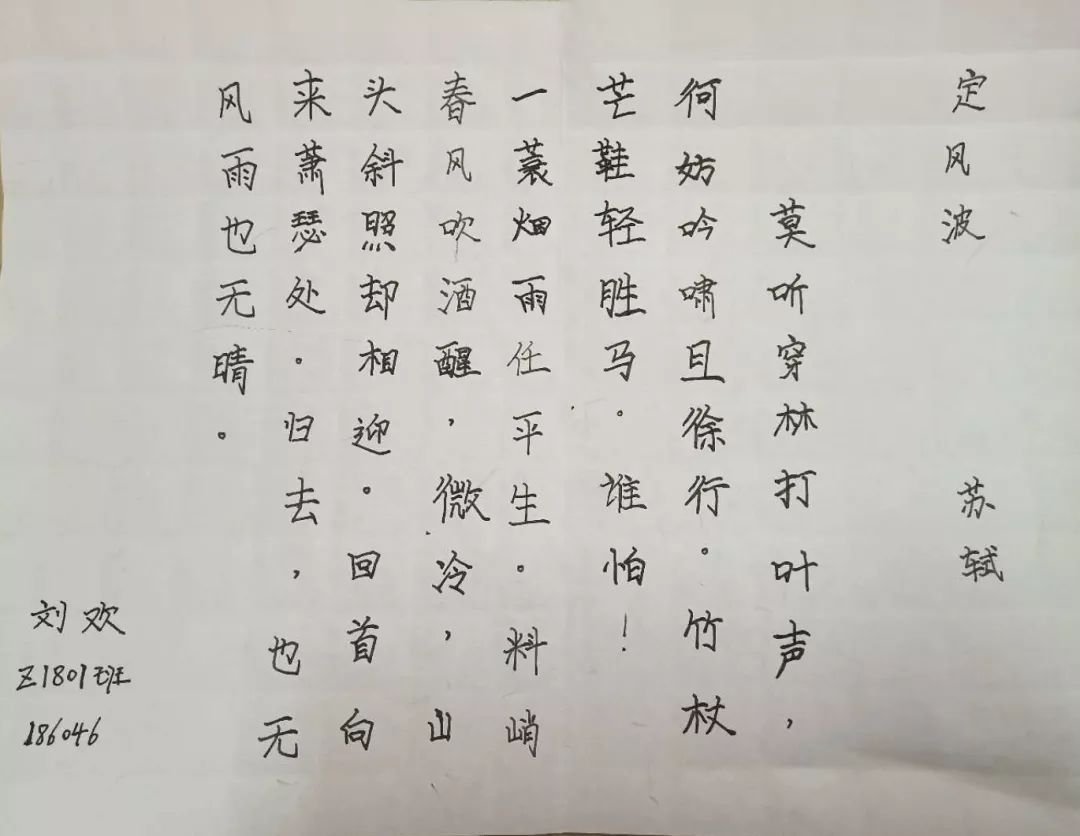 定风波 苏轼
莫听穿林打叶声，
何妨吟啸且徐行。竹杖
芒鞋轻胜马。谁怕！
一蓑烟雨任平生。料峭
春风吹酒醒，微冷，山
头斜照却相迎。回首向
来萧瑟处。归去，也无
风雨也无晴。
刘欢
Z1801班
186046